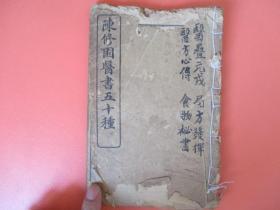 陳修園醫書五十種
醫壘元戎 局方發揮
醫方心傳 食物秘書